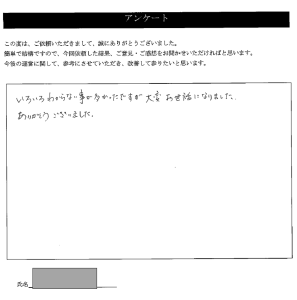 アンケート
この度は、ご依頼いただきまして、誠にありがとうございました。
簡単で結構ですので、今回依頼した結果、ご意見・ご感想をお聞かせいただければと思います。
今後の運営に関して、参考にさせていただき、改善して参りたいと思います。
いろいろわからない事が多かったですが 大変 お世話になりました。
ありがとう ございました。
氏名